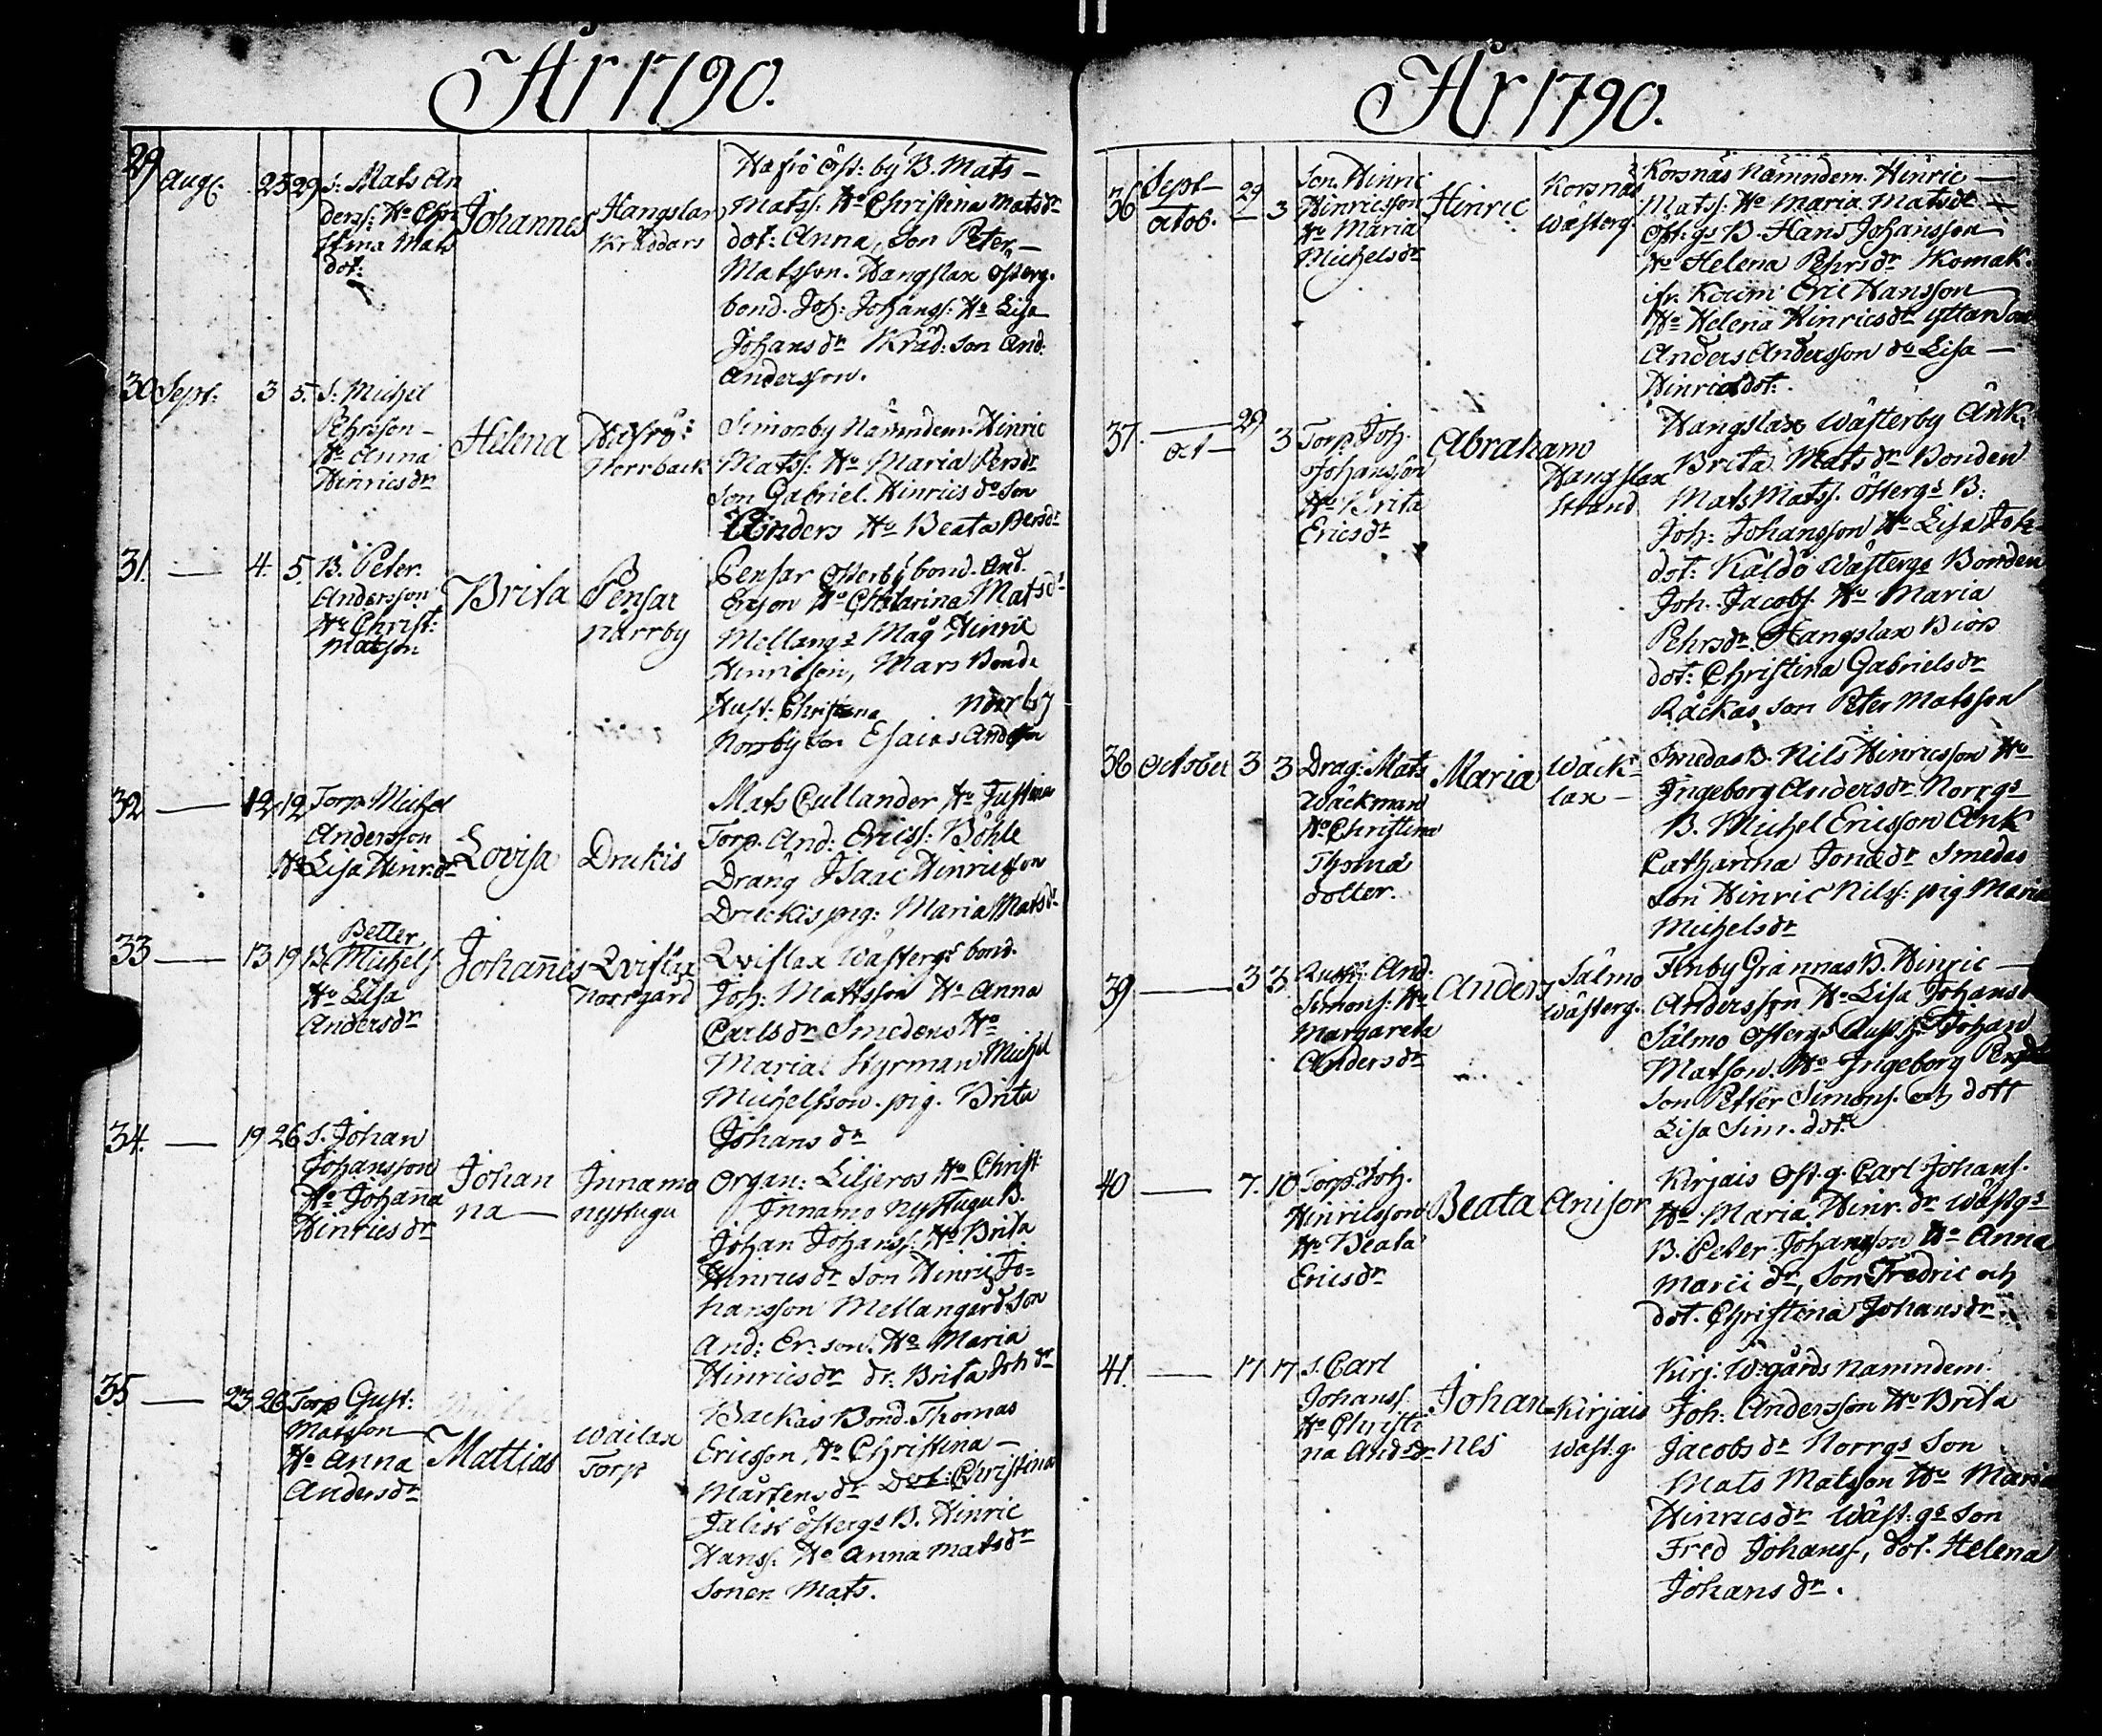 År 1790.
29 Aug. 25 29 s: Mats An
derss: Ho Chri
stina Mats
dot:
Johannes
Hangslax
Kräddars
Hafrö öst: by B. Mats
Matss: Ho Christina Matsdr
dot: Anna, Son Peter
Matsson. Hangslax österg.
bond. Joh: Johanss: Ho Lisa
Johansdr Kräd: son And:
Andersson.
30 Sept: 3 5. S: Michel
Pehrsson
Ho Anna
Hinricsdr
Helena
Hafrö
Norrback
Simonby Nämndem. Hinric
Matss: Ho Maria Persdr
Son Gabriel. Hinrics do son
Anders Ho Beata Persdr
31. — 4. 5. B. Peter
Andersson
Ho Christ:
Matson
Brita
Pensar
norrby
Pensar Österby bond. And.
Erson Ho Chatarina Matsdr
Mellangs Måg Hinric
Henricson, Mars Bonde
Hust: Christina norrby
Norrby son Esaias Anderson
32 — 12 12 Torp. Michel
Andersson
Ho Lisa Hinr:dr
Lovisa
Drukis
Mats Cullander Ho Justina
Torp. And: Ericss: Böhle
Dräng Isaac Hinricsson
Druckis pig: Maria Matsdr
33 — 13 19 B. Petter
Michelss
Ho Lisa
Andersdr
Johannes
Qvislax
Norrgård
Qvislax Wästergs bond.
Joh: Mattsson Ho Anna
Carlsdr Smedens Ho
Maria Styrman Michel
Michelsson. pig. Brita
Johansdr
34. — 19 26 s. Johan
Johansson
Ho Johanna
Hinricsdr
Johan
na
Innamo
nystugu
Organ: Liljeros Ho Christ:
Innamo nystugu B.
Johan Johanss: Ho Brita
Hinricsdr Son Hinric Jo=
hansson Mellangård: Son
And: Er:son. Ho Maria
Hinricsdr dr: Brita Joh dr
35 — 23 26 Torp Gust:
Matsson
Ho Anna
Andersdr
Mattias
Wailax
Torp
Backas Bond. Thomas
Ericsson Ho Christina
Mårtensdr Dot: Christina
Jalist östergs B. Hinric
Hanss. Ho Anna Matsdr
Sonen Mats.
År 1790.
36 Sept 29
octob. 3
Son. Hinric
Hinricsson
Ho Maria
Michelsdr
Hinric
Korsnäs
Wästerg.
Korsnäs Nämndem. Hinric
Matss. Ho Maria Matsdr
Öst:gs B. Hans Johansson
Ho Helena Pehrsdr Skomak.
ifr. Koumi Eric Hansson
Ho Helena Hinricsdr
Anders Andersson do Lisa
Hinricsdot.
37. — 29
oct — 3 Torp. Joh.
Johansson
Ho Brita
Ericsdr
Abraham
Hangslax
strand
Hangslax Wästerby Änk:
Brita Matsdr Bonden
Mats Matss. östergs B:
Joh: Johansson Ho Lisa Joh
dot: Kaldo Wästergs Bonden
Joh. Jacobs. Ho Maria
Pehrsdr. Hangslax Biörs
dot: Christina Gabrielsdr
Räckas son Peter Matsson
38 October 3 3 Drag: Mats
Wäckman
Ho Christina
Thoma
dotter.
Maria
Wäck=
lax
Smedas B. Nils Hinricsson Ho
Ingeborg Andersdr. Norrgs
B. Michel Ericsson Änk
Catharina Jonædr Smedas
son Hinric Nilss: pig Maria
Michelsdr
39 — 3 3. And:
Simons: Ho
Margareta
Andersdr
Anders
Sälmo
Wästerg.
Finby Grännäs B. Hinric
Andersson Ho Lisa Johans
Sälmo Östergs Johan
Matson. Ho Ingeborg
Son Petter Simons. och dott
Lisa Sim. dot.
40 — 7. 10 Torp. Joh.
Hinricsson
Ho Beata
Ericsdr
Beata
Anisor
Kirjais Öst. g. Carl Johans.
Ho Maria Hinr. dr Wästgs
B. Peter Johansson Ho Anna
Marci dr, Son Fredric och
dot. Christina Johansdr
41. — 17 17 s. Carl
Johanss
Ho Christi
na And:dr
Johan=
nes
Kirjais
Wäst:g.
Kirj: W:gårds nämndem:
Joh: Andersson Ho Brita
Jacobsdr Norrgs Son
Mats Matsson Ho Maria
Hinricsdr Wäst:gs son
Fred Johanss, dot. Helena
Johansdr.